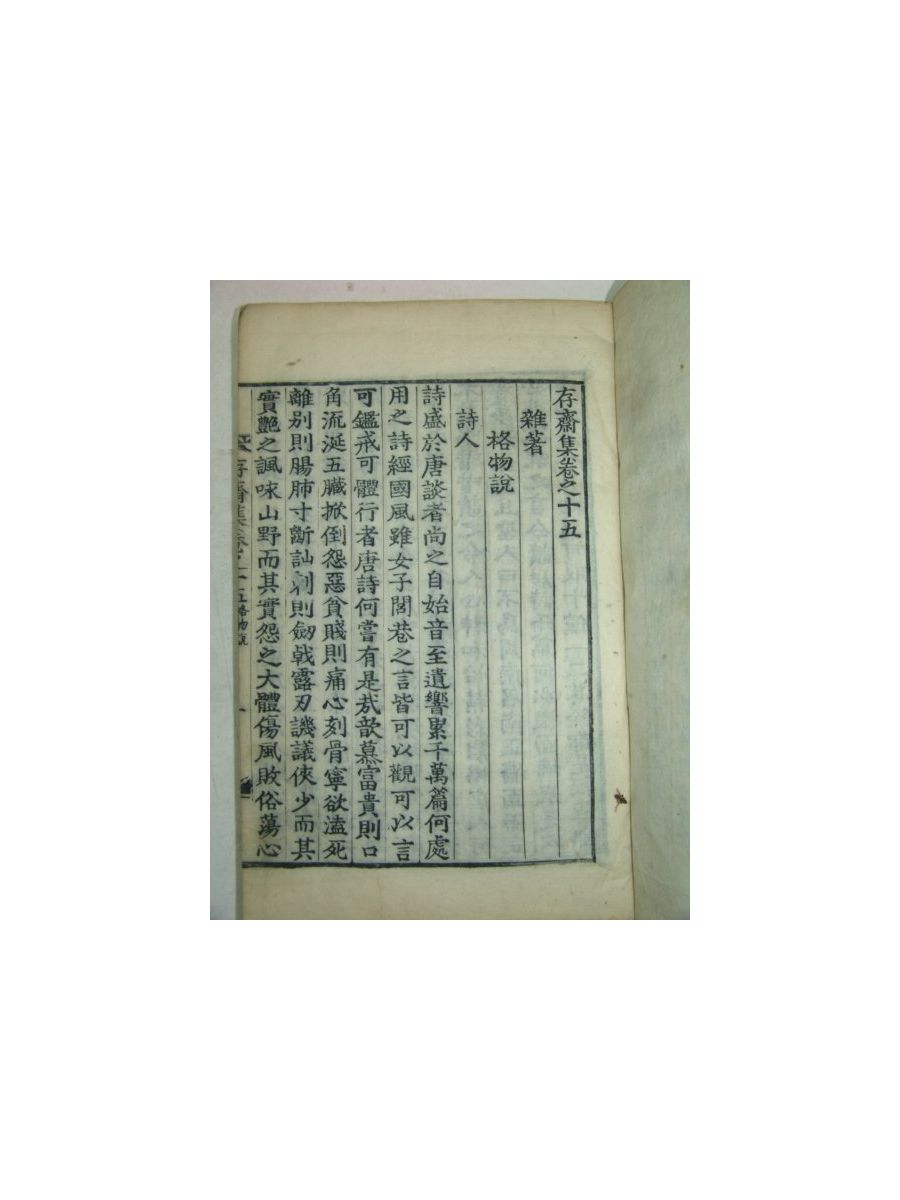 存齋集卷之十五
雜著
格物說
詩人
詩盛於唐談者尚之自始音至遺響累千萬篇何處
用之詩經國風雖女子閭巷之言皆可以觀可以言
可鑑戒可體行者唐詩何嘗有是哉歆慕富貴則口
角流涎五臟掀倒怨惡貧賤則痛心刻骨寧欲溘死
離別則腸肺寸斷訕刺則劒戟露刃譏議俠少而其
實艶之諷味山野而其實怨之大體傷風敗俗蕩心
存齋集卷之十五 格物說 一